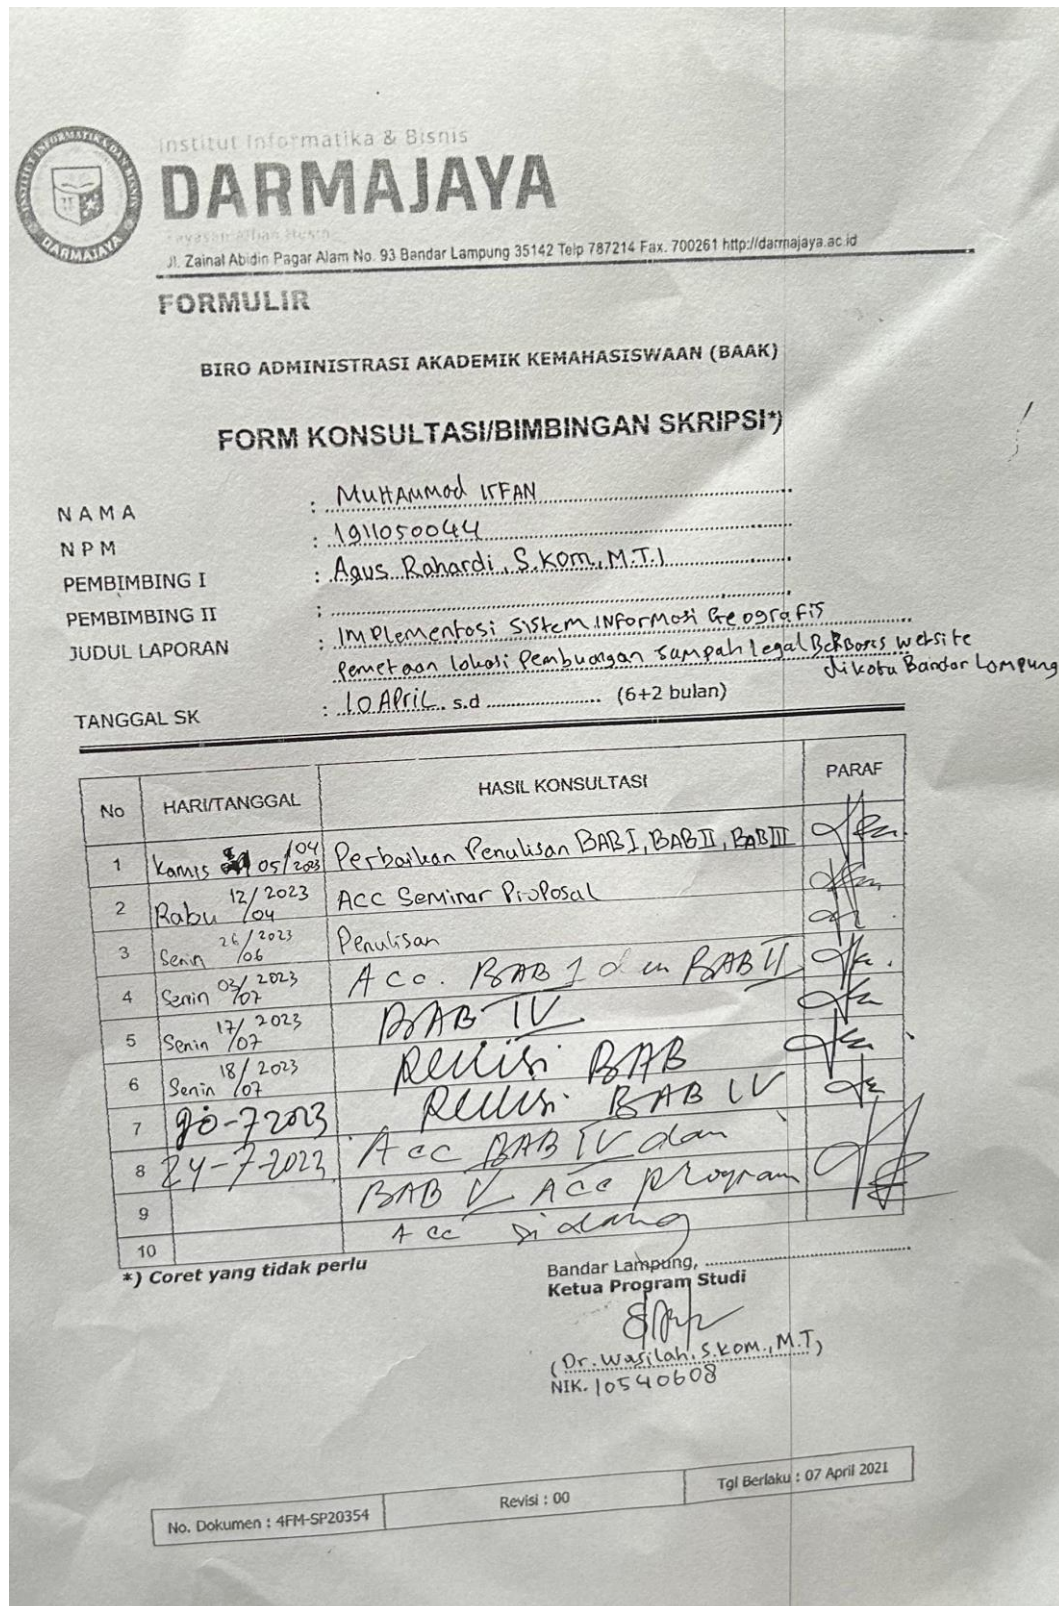 Institut Informatika & Bisnis
DARMAJAYA
Yayasan Alfian Husin
Jl. Zainal Abidin Pagar Alam No. 93 Bandar Lampung 35142 Telp 787214 Fax. 700261 http://darmajaya.ac.id
FORMULIR
BIRO ADMINISTRASI AKADEMIK KEMAHASISWAAN (BAAK)
FORM KONSULTASI/BIMBINGAN SKRIPSI*)
NAMA : MUHAMMad IRFAN
NPM : 1911050044
PEMBIMBING I : Agus Rahardi, S.Kom., M.T.I
PEMBIMBING II :
JUDUL LAPORAN : Implementasi Sistem Informasi Geografis
Pemetaan lokasi Pembuangan Sampah legal BerBasis Website
dikota Bandar Lampung
TANGGAL SK : 10 APril s.d (6+2 bulan)
No HARI/TANGGAL HASIL KONSULTASI PARAF
1 Kamis 05/04 2023 Perbaikan Penulisan BAB I, BAB II, BAB III
2 Rabu 12/04 2023 ACC Seminar Proposal
3 Senin 26/06 2023 Penulisan
4 Senin 03/07 2023 Acc. BAB I dan BAB II
5 Senin 17/07 2023 BAB IV
6 Senin 18/07 2023 Revisi BAB
7 20-7 2023 Revisi BAB IV
8 24-7-2023 Acc BAB IV dan
9 BAB V Acc program
10 Acc Sidang
*) Coret yang tidak perlu
Bandar Lampung,
Ketua Program Studi
(Dr. Wasilah. S.Kom., M.T)
NIK. 10540608
No. Dokumen : 4FM-SP20354 Revisi : 00 Tgl Berlaku : 07 April 2021